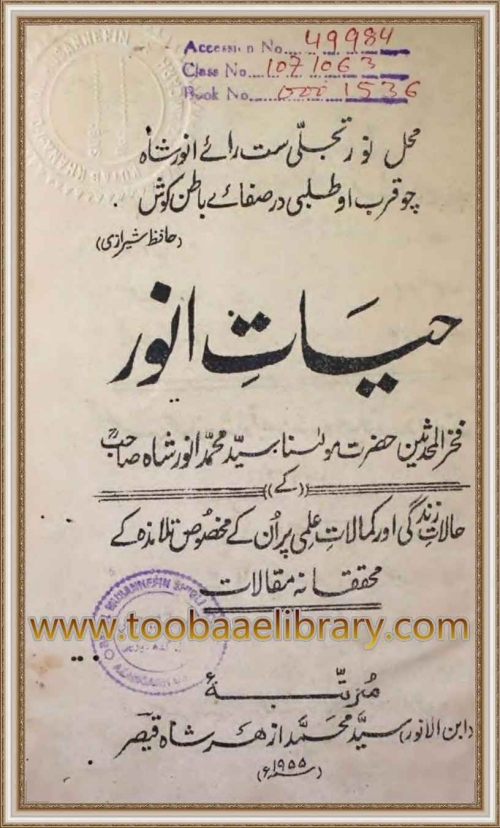 Accession No. 49984
Class No. 1071063
Book No. 0001536
محل نور تجلی ست رائے انور شاہ
چو قرب او طلبی در صفائے باطن کوش
(حافظ شیرازی)
حیاتِ انور
فخر المحدثین حضرت مولٰنا سید محمد انور شاہ صاحبؒ
(کے)
حالاتِ زندگی اور کمالاتِ علمی پر اُن کے مخصوص تلامذہ کے
محققانہ مقالات
www.toobaaelibrary.com
مُرتّبہٴ
(ابن الانور) سیّد محمد ازھر شاہ قیصر
(۱۹۵۵ء)